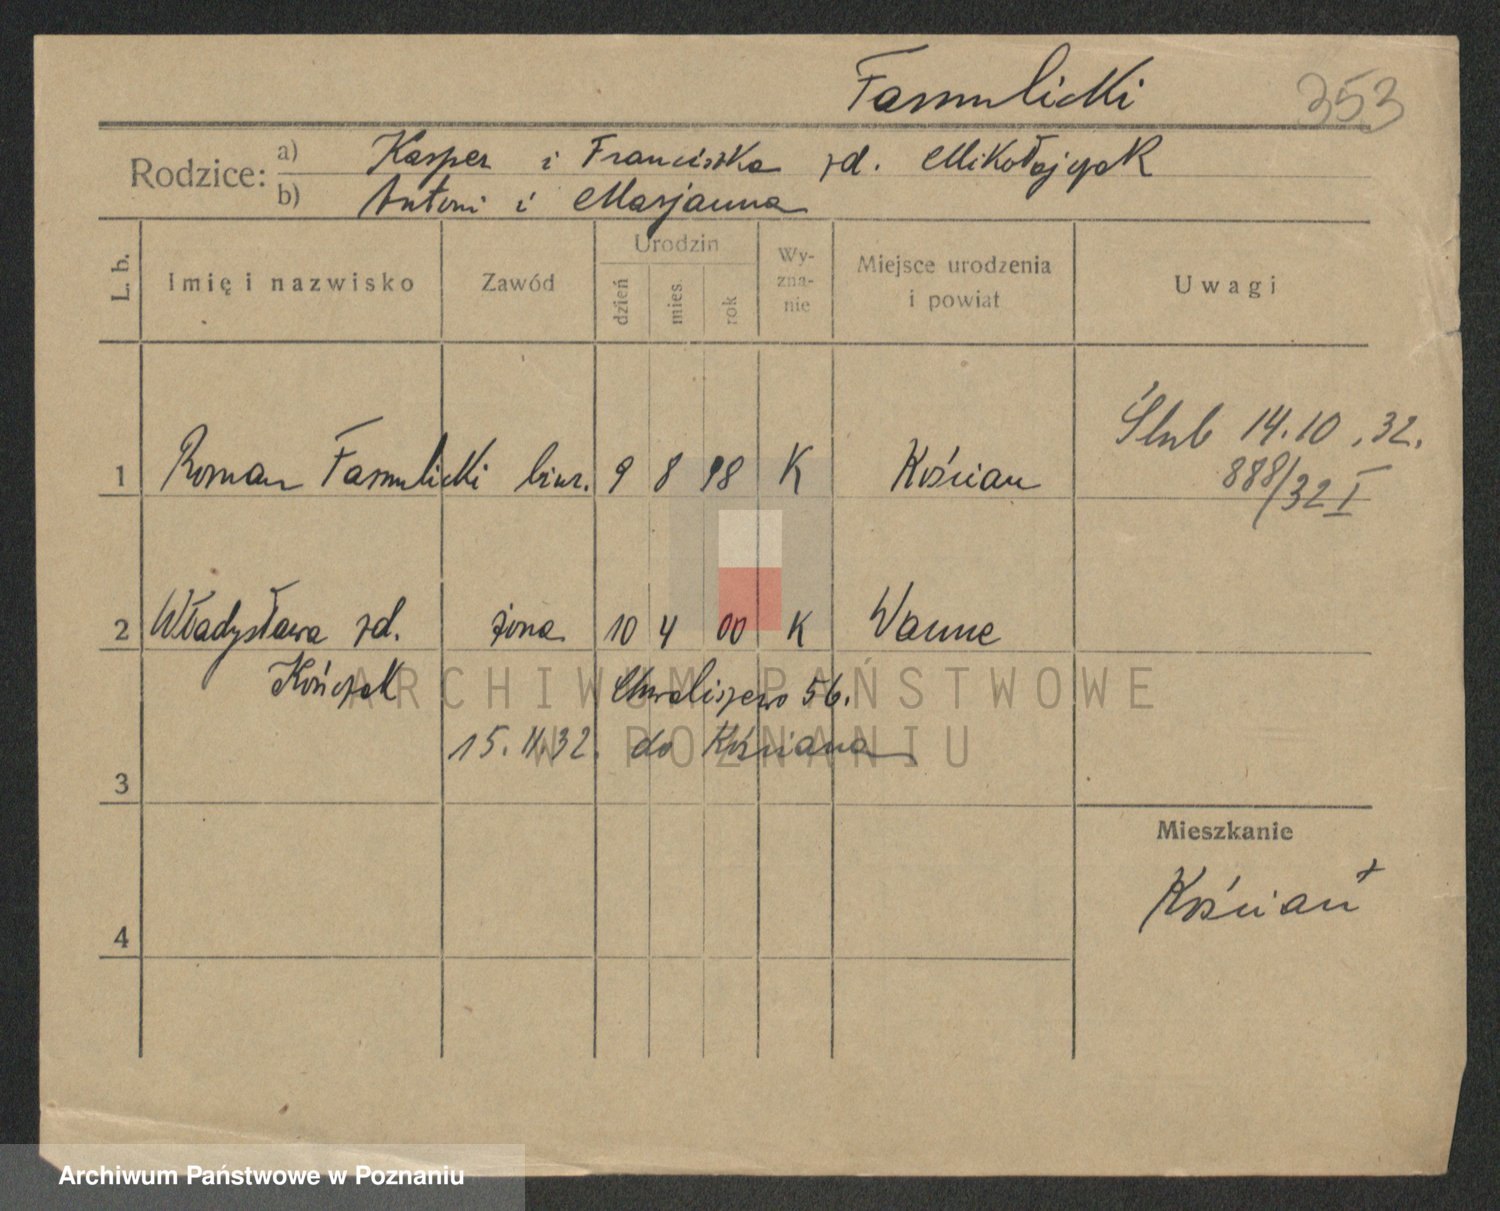 Famulicki 353
Rodzice: a) Kasper i Franciszka zd. Mikołajczak
b) Antoni i Marjanna
L. b. Imię i nazwisko Zawód Urodzin dzień mies. rok Wy-zna-nie Miejsce urodzenia i powiat Uwagi
Ślub 14.10.32.
888/32 I
1 Roman Famulicki biur. 9 8 98 K Kościan
2 Władysława zd. żona 10 4 00 K Wanne
Kończak Chwaliszewo 56.
15.11.32. do Kościana
3
Mieszkanie
Kościan
4
ARCHIWUM PAŃSTWOWE
W POZNANIU
Archiwum Państwowe w Poznaniu